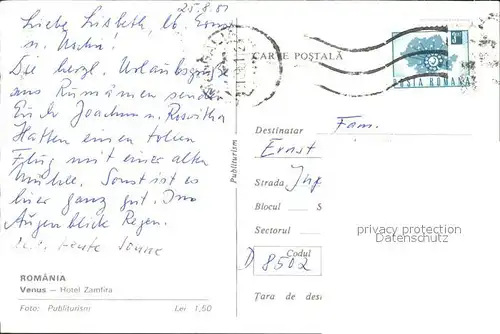 25.8.81
Liebe Lisbeth, lb. Ernst
u. Uschi!
Die herzl. Urlaubsgrüße
aus Rumänien senden
Euch Joachim u. Roswitha
Hatten einen tollen
Flug mit einer alten
Mühle. Sonst ist es
hier ganz gut. Im
Augenblick Regen.
heute Sonne
ROMÂNIA
Venus — Hotel Zamfira
Foto: Publiturism Lei 1,50
Publiturism
CARTE POȘTALĂ
POSTA ROMANA
Destinatar Fam.
Ernst
Strada
Blocul S
Sectorul
Codul
D 8502
Țara de des
privacy protection
Datenschutz